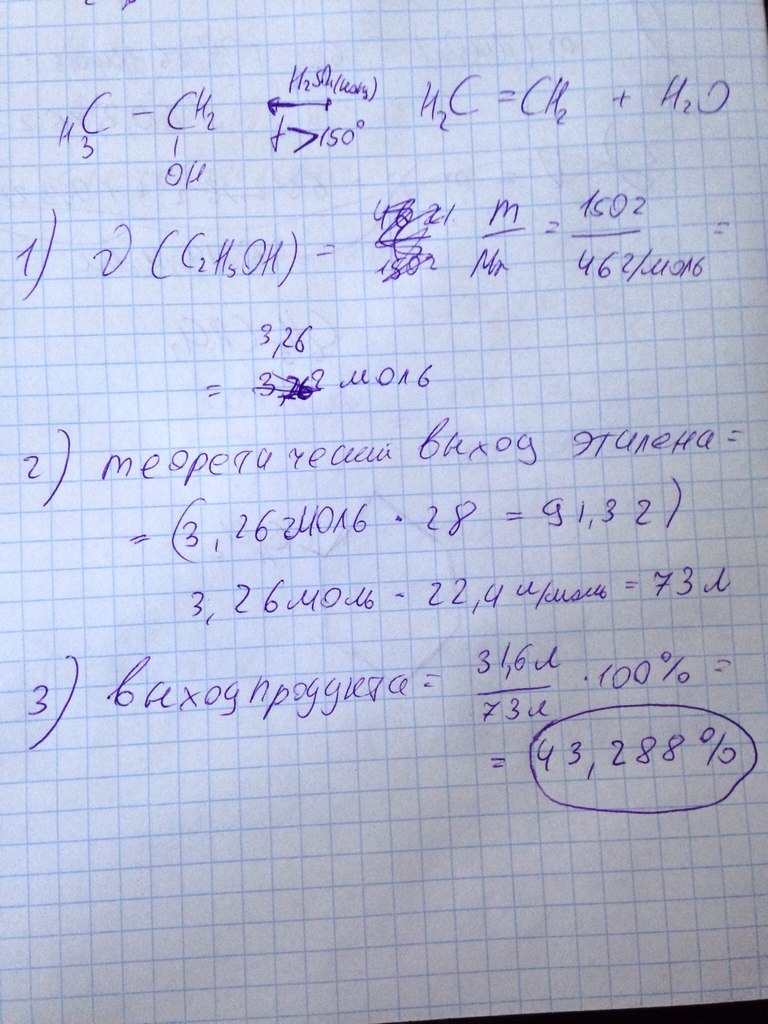 H₃C – CH₂ ← H₂SO₄(конц) H₂C = CH₂ + H₂O
OH t > 150°
1) ν (C₂H₅OH) = m/Mr = 150 г/46 г/моль =
= 3,26 моль
2) теоретический выход этилена =
= (3,26 моль · 28 = 91,3 г)
3,26 моль · 22,4 л/моль = 73 л
3) выход продукта = 31,6 л/73 л · 100% =
= 43,288%